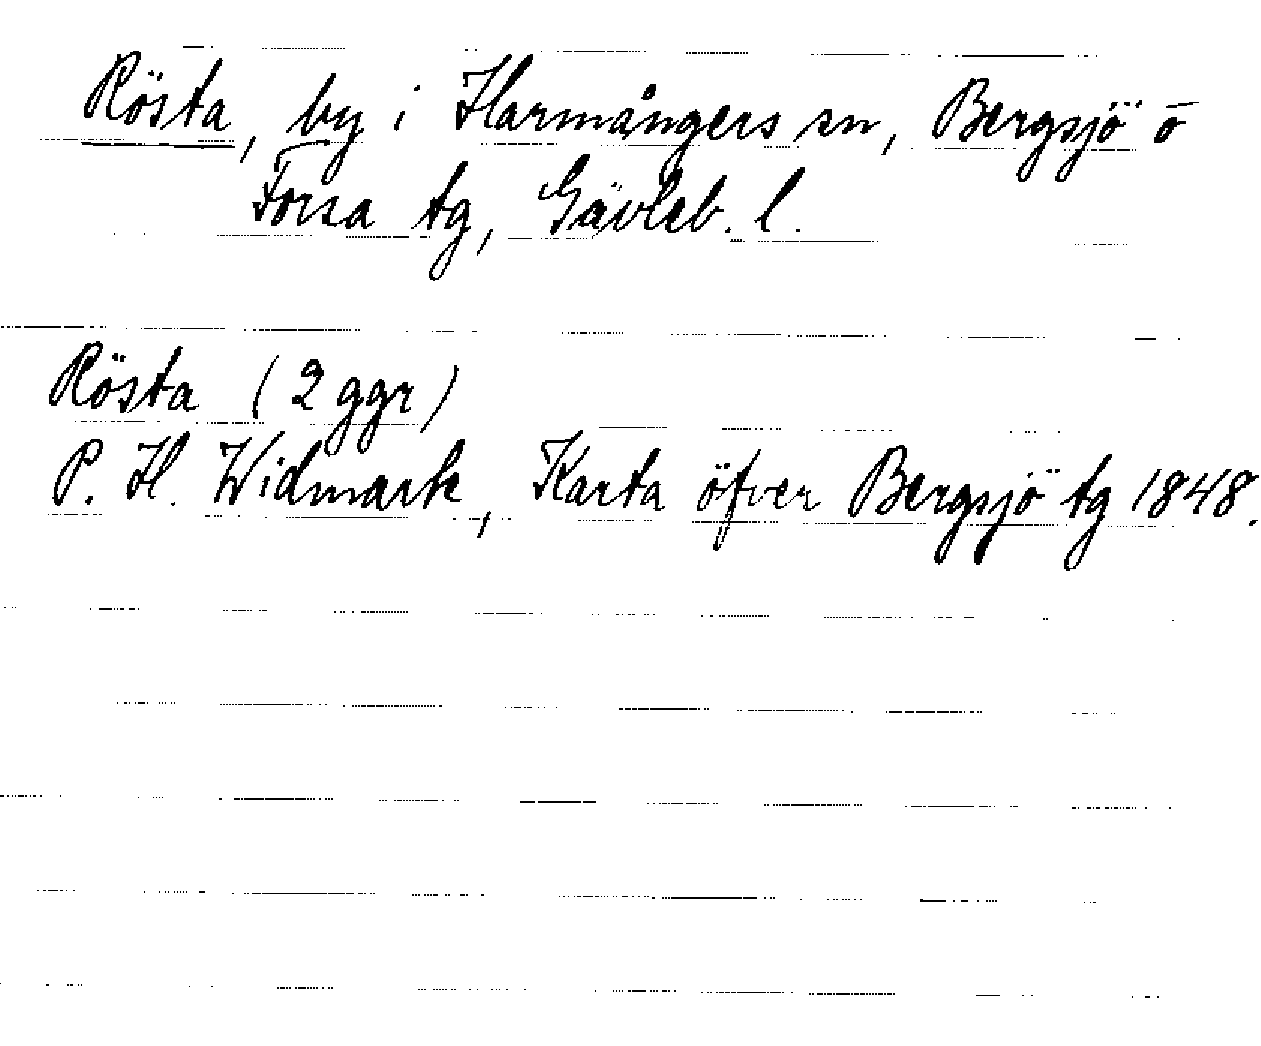 Rösta, by i Harmångers sn, Bergsjö o
Forsa tg, Gävleb. l.
Rösta (2 ggr)
P. H. Widmark, Karta öfver Bergsjö tg 1848.